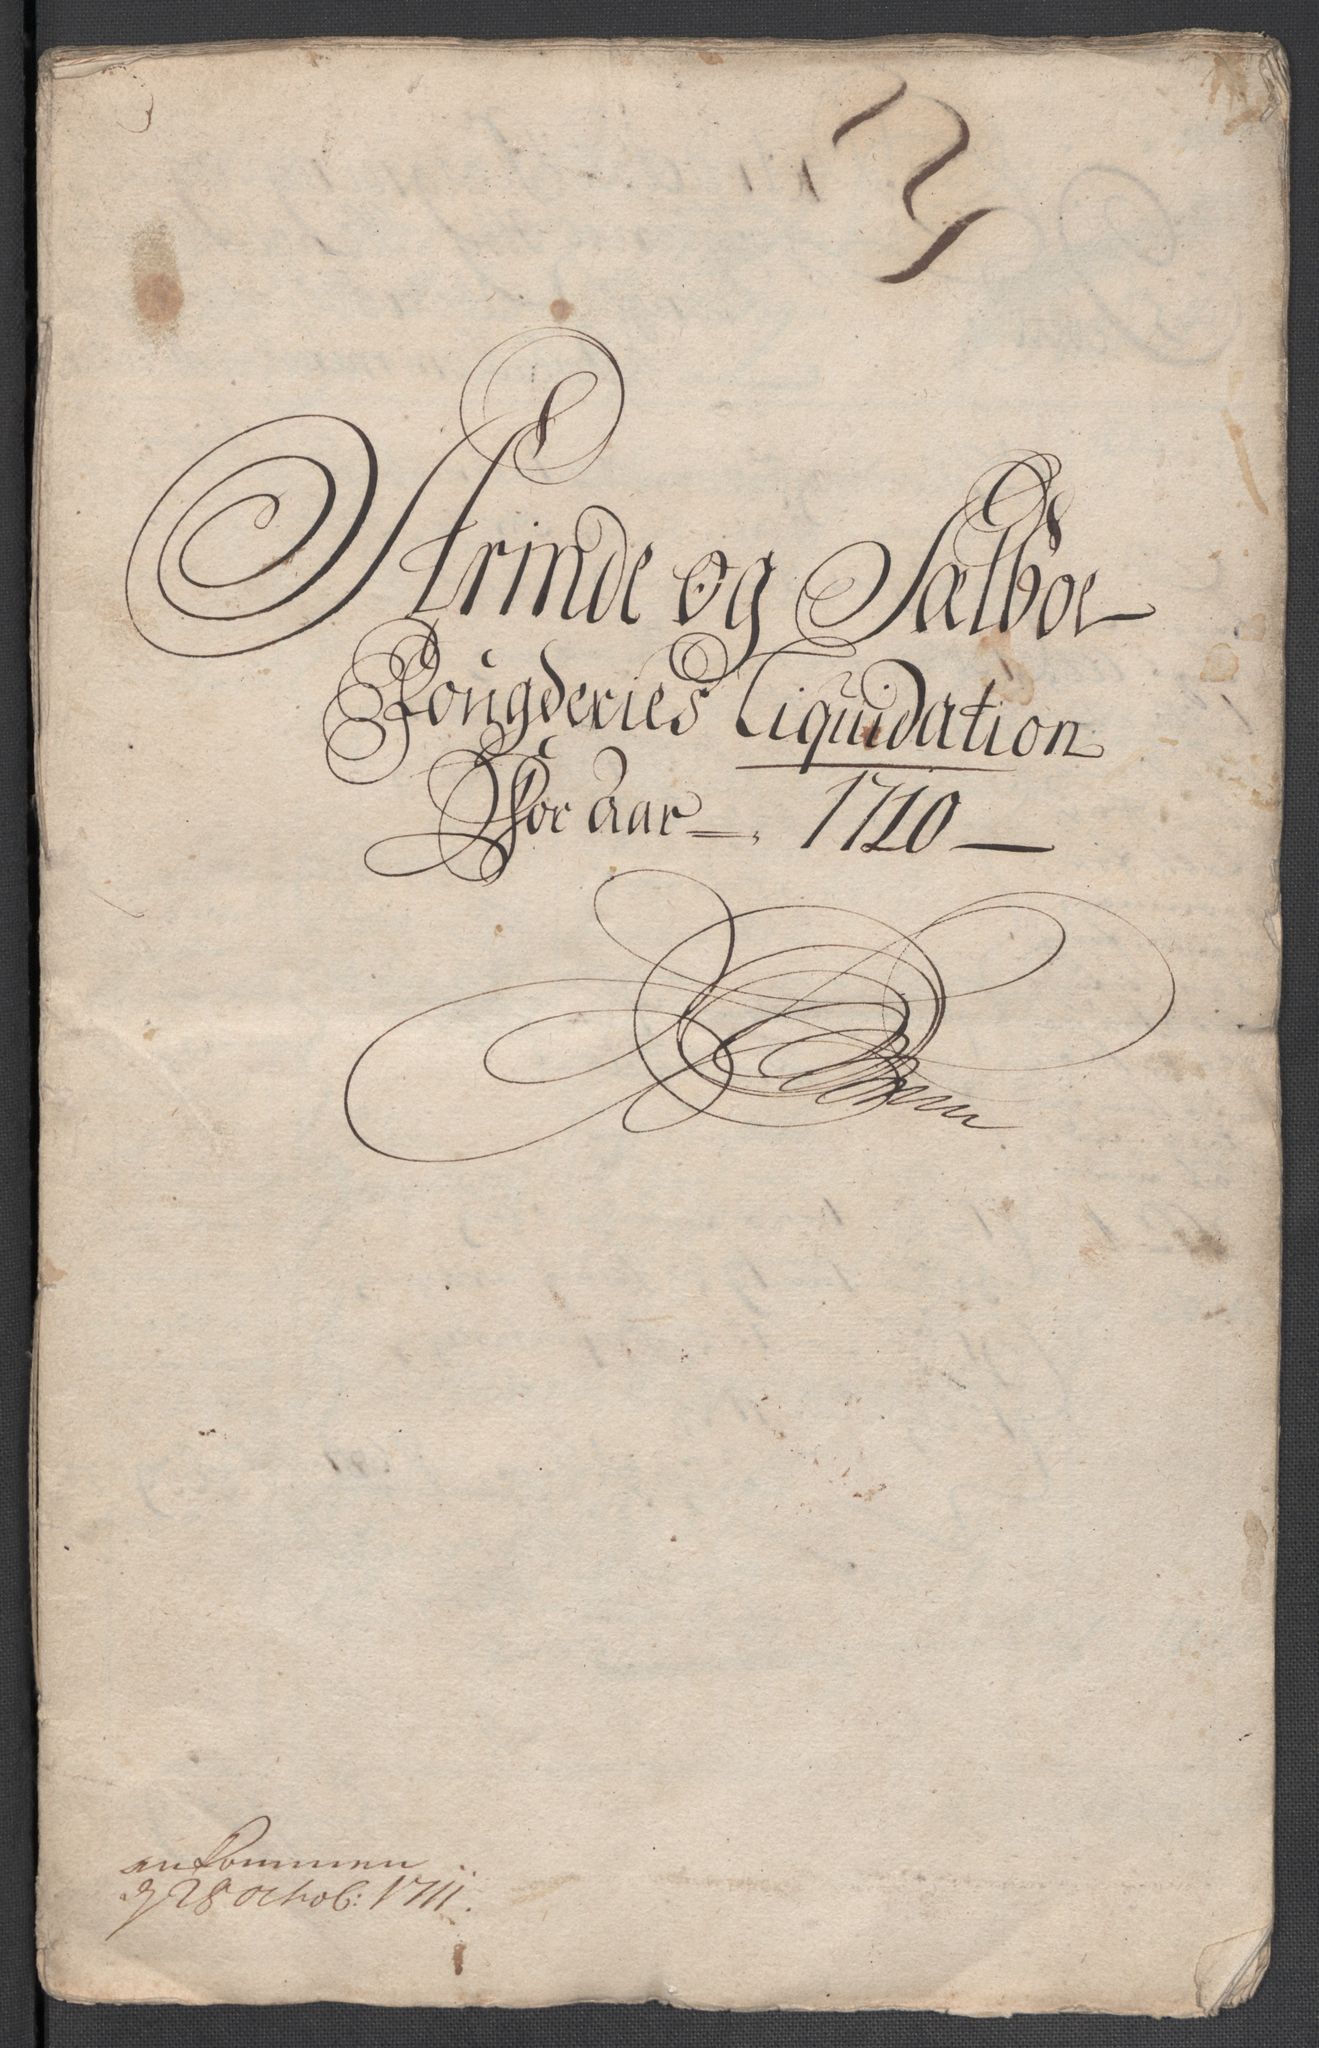 Strinde og Sælboe
Fougderies Liquidation
For Aar 1710
ankommen
d 28 octob: 1711.